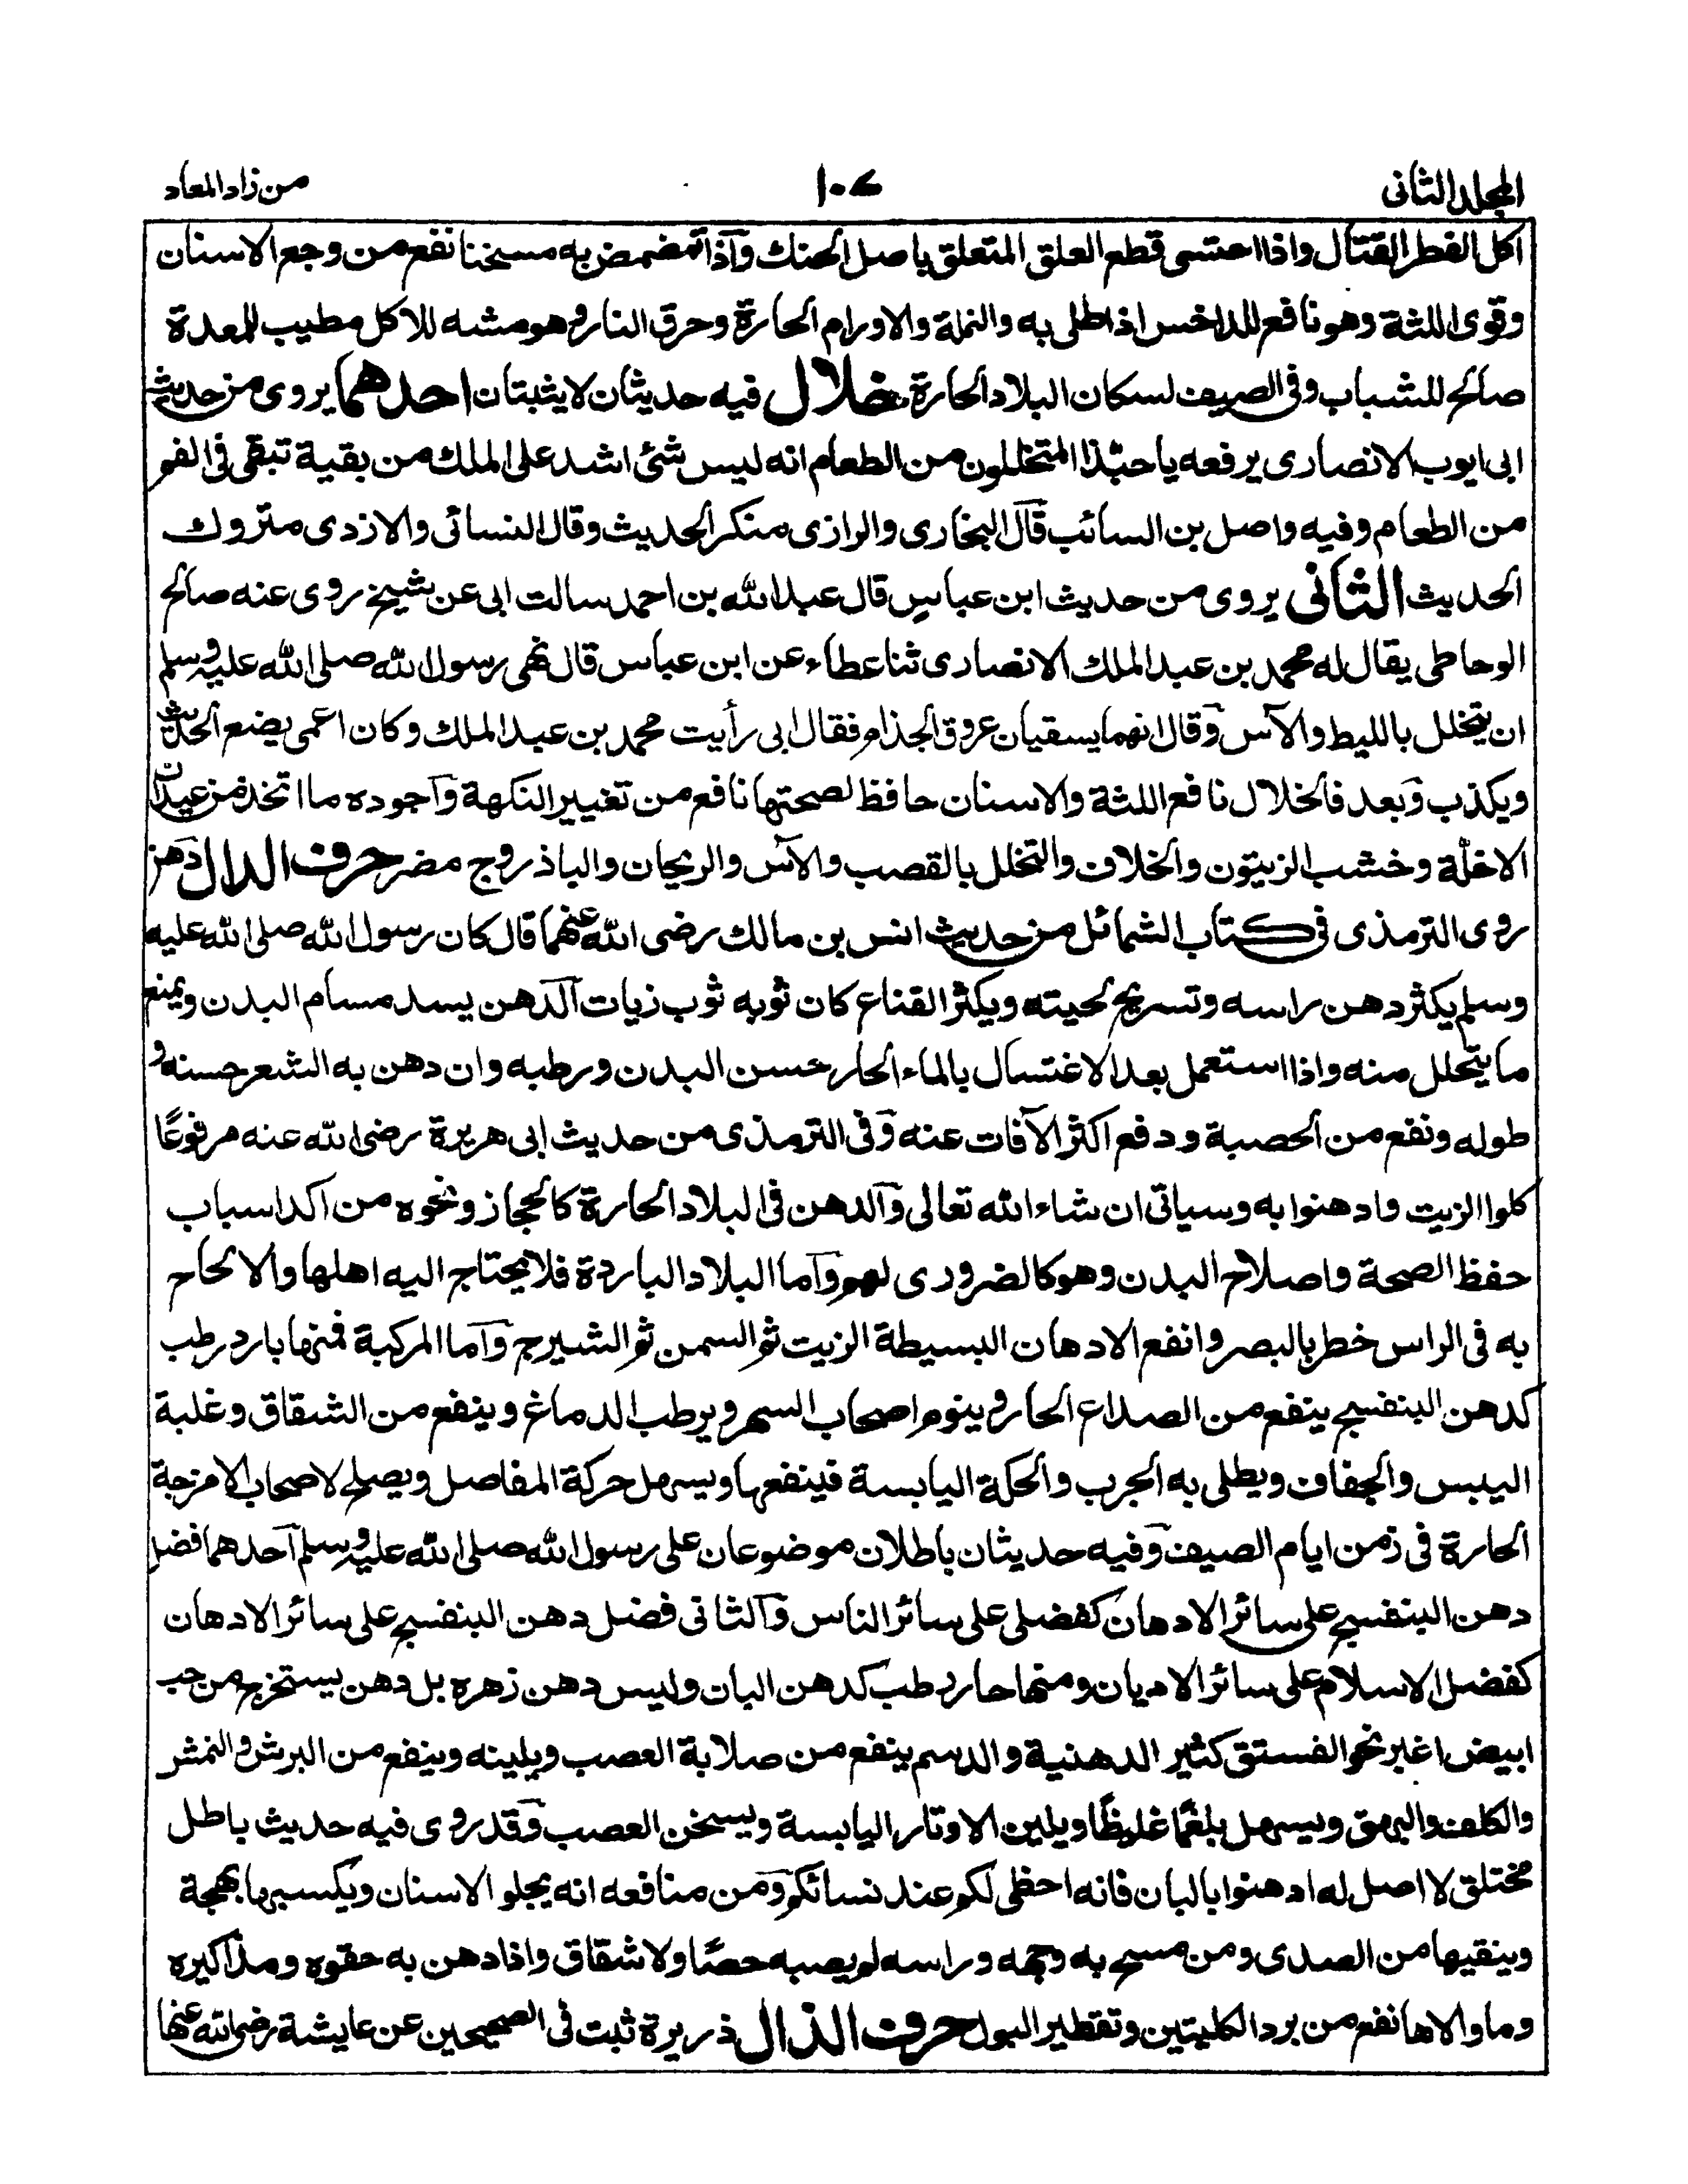 المجلد الثانى
١٠٧
من زاد المعاد
اكل الفطر القتال واذا احتسى قطع العلق المتعلق باصل الحنك وآذا تمضمض به مسخنا نفع من وجع الاسنان
وقوى اللثة وهو نافع للداخس اذا طلى به والنملة والاورام الحارة وحرق النار وهو مشه للاكل مطيب للمعدة
صالح للشباب وفى الصيف لسكان البلاد الحارة خلال فيه حديثان لا يثبتان احدهما يروى من حديث
ابى ايوب الانصارى يرفعه يا حبّذا المتخللون من الطعام انه ليس شئ اشد على الملك من بقية تبقى فى الفم
من الطعام وفيه واصل بن السائب قآل البخارى والرازى منكر الحديث وقال النسائى والازدى متروك
الحديث الثانى يروى من حديث ابن عباس قال عبد الله بن احمد سالت ابى عن شيخ روى عنه صالح
الوحاطى يقال له محمد بن عبد الملك الانصارى ثنا عطاء عن ابن عباس قال نهى رسول الله صلى الله عليه وسلم
ان يتخلل بالليط والآس وقال انهما يسقيان عروق الجذام فقال ابى رأيت محمد بن عبد الملك وكان اعمى يضع الحديث
ويكذب وبعد فالخلال نافع اللثة والاسنان حافظ لصحتها نافع من تغيير النكهة وآجوده ما اتخذ من عيدان
الاخلّة وخشب الزيتون والخلاف والتخلل بالقصب والآس والريحان والباذروج مضر حرف الدال دهن
روى الترمذى فى كتاب الشمائل من حديث انس بن مالك رضى الله عنهما قال كان رسول الله صلى الله عليه
وسلم يكثر دهن راسه وتسريح لحيته ويكثر القناع كان ثوبه ثوب زيات آلدهن يسد مسام البدن ويمنع
ما يتحلل منه واذا استعمل بعد الاغتسال بالماء الحار حسن البدن ورطبه وان دهن به الشعر حسنه و
طوله ونفع من الحصبة ودفع اكثر الآفات عنه وفى الترمذى من حديث ابى هريرة رضى الله عنه مرفوعًا
كلوا الزيت وادهنوا به وسياتى ان شاء الله تعالى وآلدهن فى البلاد الحارة كالحجاز ونحوه من اكد اسباب
حفظ الصحة واصلاح البدن وهو كالضرورى لهم وآما البلاد الباردة فلا يحتاج اليه اهلها والالحاح
به فى الراس خطر بالبصر وانفع الادهان البسيطة الزيت ثم السمن ثم الشيرج وآما المركبة فمنها بارد رطب
كدهن البنفسج ينفع من الصداع الحار وينوم اصحاب السهر ويرطب الدماغ وينفع من الشقاق وغلبة
اليبس والجفاف ويطلى به الجرب والحكة اليابسة فينفعها ويسهل حركة المفاصل ويصلح لاصحاب الامزجة
الحارة فى زمن ايام الصيف وفيه حديثان باطلان موضوعان على رسول الله صلى الله عليه وسلم آحدهما فضل
دهن البنفسج على سائر الادهان كفضلى على سائر الناس وآلثانى فضل دهن البنفسج على سائر الادهان
كفضل الاسلام على سائر الاديان ومنها حار رطب كدهن البان وليس دهن زهره بل دهن يستخرج من حب
ابيض اغبر نحو الفستق كثير الدهنية والدسم ينفع من صلابة العصب ويلينه وينفع من البرش والنمش
والكلف والبهق ويسهل بلغمًا غليظًا ويلين الاوتار اليابسة ويسخن العصب وقد روى فيه حديث باطل
مختلق لا اصل له ادهنوا بالبان فانه احظى لكم عند نسائكم ومن منافعه انه يجلو الاسنان ويكسبها بهجة
وينقيها من الصدى ومن مسح به وجهه وراسه لم يصبه حصًا ولا شقاق واذا دهن به حقوه ومذاكيره
وما والاها نفع من برد الكليتين وتقطير البول حرف الذال ذريرة ثبت فى الصحيحين عن عايشة رضى الله عنها